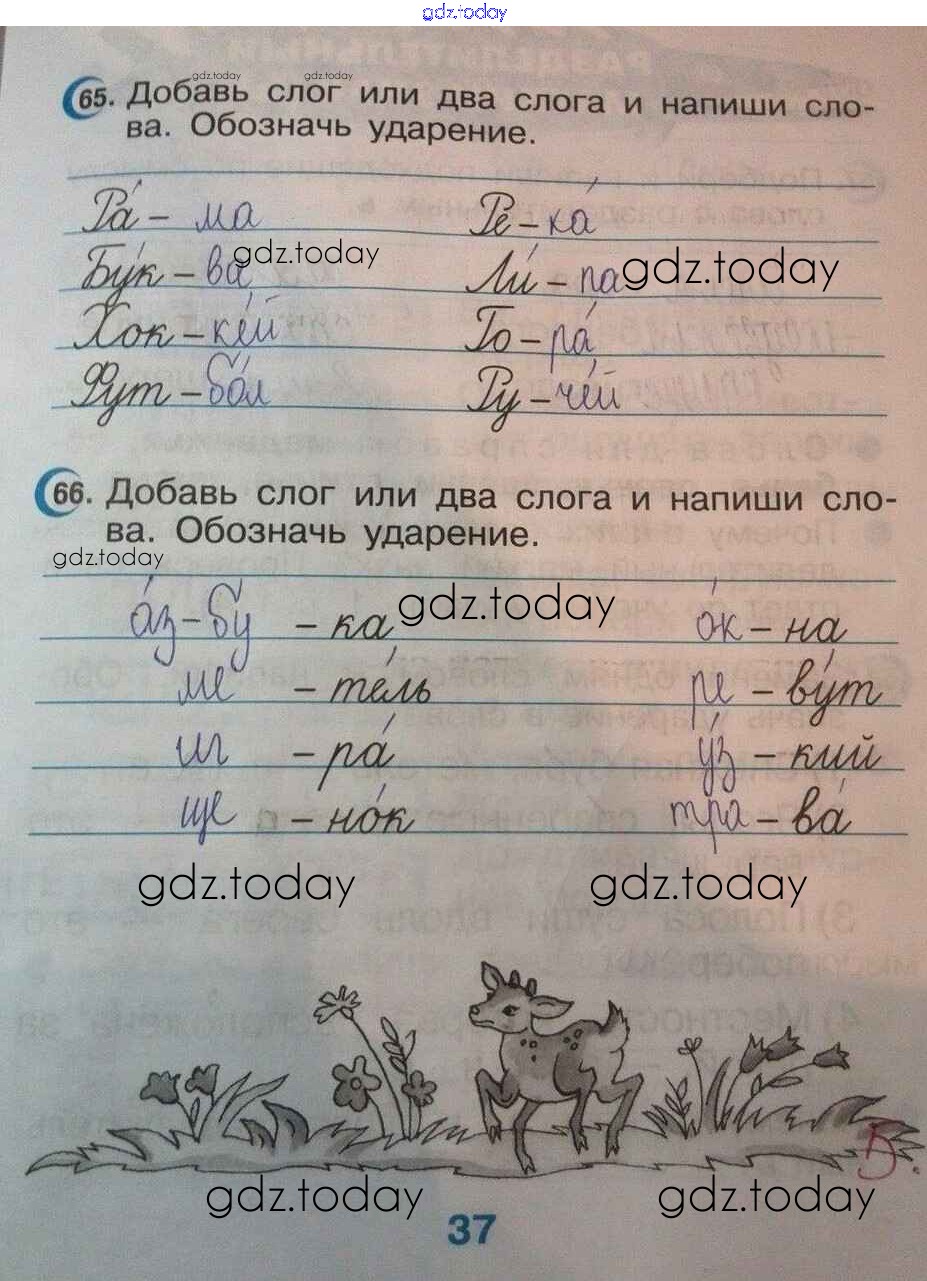 gdz.today
gdz.today gdz.today
65. Добавь слог или два слога и напиши сло-
ва. Обозначь ударение.
Ра́ – ма Ре – ка́
Бу́к – ва gdz.today Ли́ – па gdz.today
Хок – ке́й Го – ра́
Фут – бо́л Ру – че́й
66. Добавь слог или два слога и напиши сло-
ва. Обозначь ударение.
gdz.today
а́з – бу – ка gdz.today о́к – на
ме – те́ль ре – ву́т
иг – ра́ у́з – кий
ще – но́к тра – ва́
gdz.today gdz.today
5
gdz.today gdz.today
37